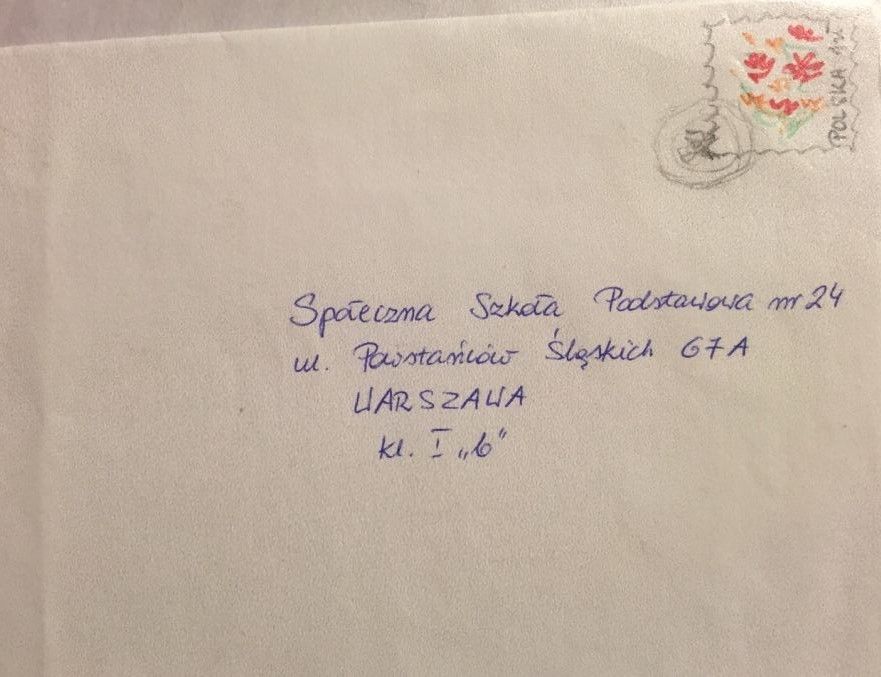 POLSKA
Społeczna Szkoła Podstawowa nr 24
ul. Powstańców Śląskich 67A
WARSZAWA
kl. I „b"